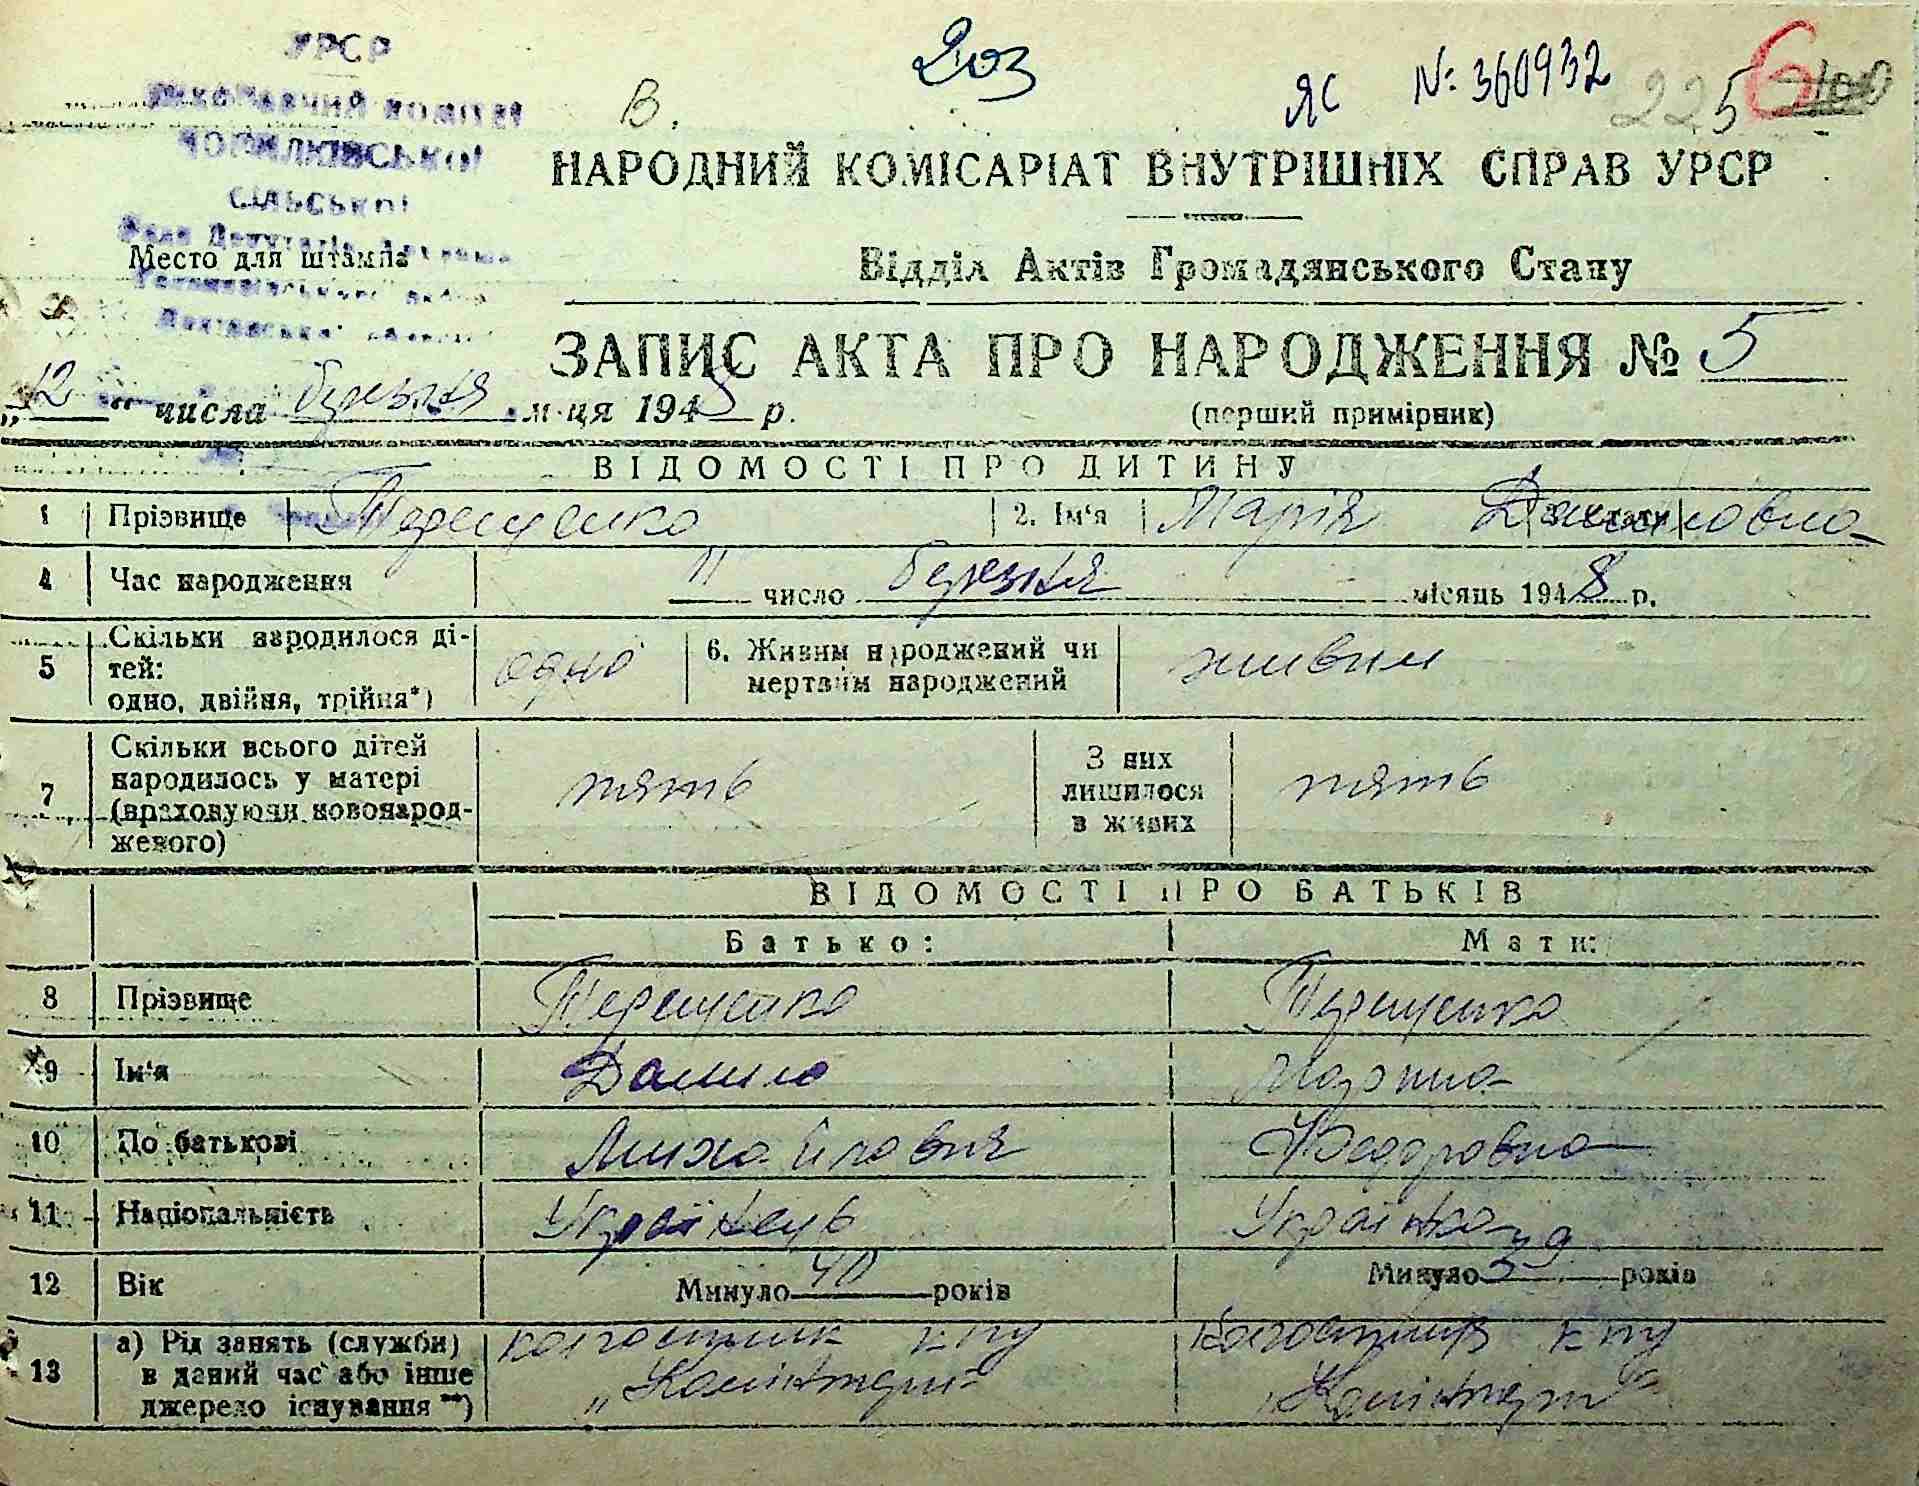 УРСР
ВИКОНАВЧИЙ КОМІТЕТ
СІЛЬСЬКОЇ
Ради Депутатів
Место для штампа
В.
203
ЯС № 360932
225 6 100
НАРОДНИЙ КОМІСАРІАТ ВНУТРІШНІХ СПРАВ УРСР
Відділ Актів Громадянського Стану
ЗАПИС АКТА ПРО НАРОДЖЕННЯ № 5
„12“ числа березня м-ця 1948 р.
(перший примірник)
ВІДОМОСТІ ПРО ДИТИНУ
1 Прізвище Терещенко 2. Ім‘я Марія Даниловна
4 Час народження 11 число березня місяць 1948 р.
5 Скільки народилося ді-
тей:
одно, двійня, трійня*) одно 6. Живим народжений чи
мертвим народжений живим
7 Скільки всього дітей
народилось у матері
(враховуючи новонарод-
женого) пять З них
лишилося
в живих пять
ВІДОМОСТІ ПРО БАТЬКІВ
Батько: Мати:
8 Прізвище Терещенко Терещенко
9 Ім‘я Данило
10 По батькові Михайлович Федоровна
11 Національність Українець Українка
12 Вік Минуло 40 років Минуло 39 років
13 а) Рід занять (служби)
в даний час або інше
джерело існування **) колгоспник к-пу
„Комінтерн“ колгоспниця к-пу
„Комінтерн“